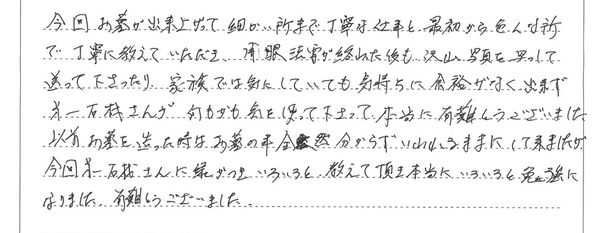 今回お墓が出来上がって細かい所まで丁寧な仕事と最初から色んな所
で丁寧に教えていただき、開眼法要が終れた後も沢山写真を写して
送って下さったり、家族では気にしていても気持ちに余裕がなく出来ず
第一石材さんが何もかも気を使って下さって本当に有難うございました
以前お墓を造った時はお墓の事全然分からずいわれるままにして来ましたが
今回第一石材さんに縁がつきいろいろと教えて頂き本当にいろいろと勉強に
なりました。有難うございました。